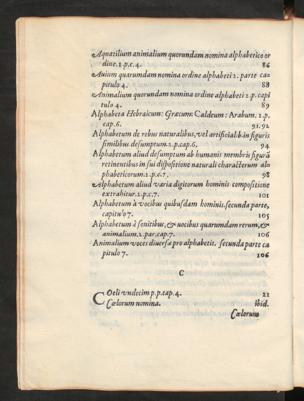 Aquatilium animalium quorundam nomina alphabetico or
dine.1.p.c.4. 86
Auium quarumdam nomina ordine alphabeti 2. parte ca-
pitulo 4. 88
Animalium quorundam nomina ordine alphabeti 2. p. capi
tulo 4. 89
Alphabeta Hebraicum: Græcum: Caldeum: Arabum. 1.p.
cap.6. 91.92
Alphabetum de rebus naturalibus, vel artificialib.in figuris
similibus desumptum.2.p.cap.6. 94
Alphabetum aliud desumptum ab humanis membris figurā
retinentibus in sui dispositione naturali charactterum al-
phabeticorum.2.p.c.7. 98
Alphabetum aliud varia digitorum hominis compositione
extrahitur.1.p.c.7. 101
Alphabetum à vocibus quibusdam hominis. secunda parte,
capitulo 7. 105
Alphabetum à sonitibus, & uocibus quarumdam rerum, &
animalium.2.par.cap.7. 106
Animalium voces diuersæ pro alphabetis. secunda parte ca
pitulo 7. 106
C
COeli vndecim p.p.cap.4. 22
Cælorum nomina. ibid.
Cælorum